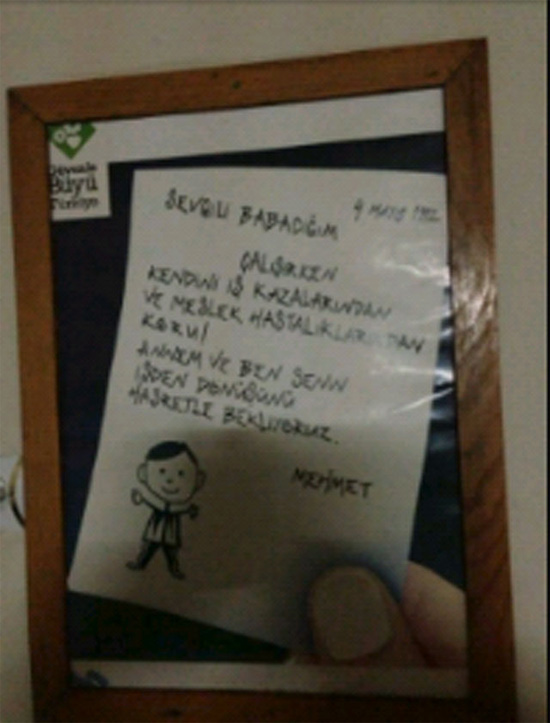 Güvenle
Büyü
Türkiye
4 MAYIS
SEVGİLİ BABACIĞIM
ÇALIŞIRKEN
KENDİNİ İŞ KAZALARINDAN
VE MESLEK HASTALIKLARINDAN
KORU!
ANNEM VE BEN SENİN
İŞDEN DÖNÜŞÜNÜ
HASRETLE BEKLİYORUZ.
MEHMET